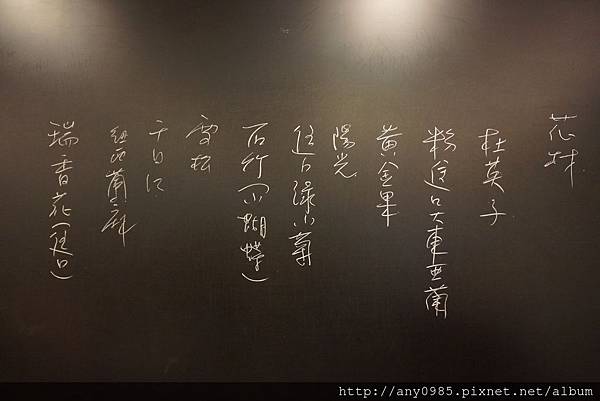 花材
杜英子
粉進口大東亞蘭
黃金果
陽光
進口綠小菊
石竹(小蝴蝶)
雪松
千日紅
紐西蘭麻
瑞香花(進口)
http://any0985.pixnet.net/album